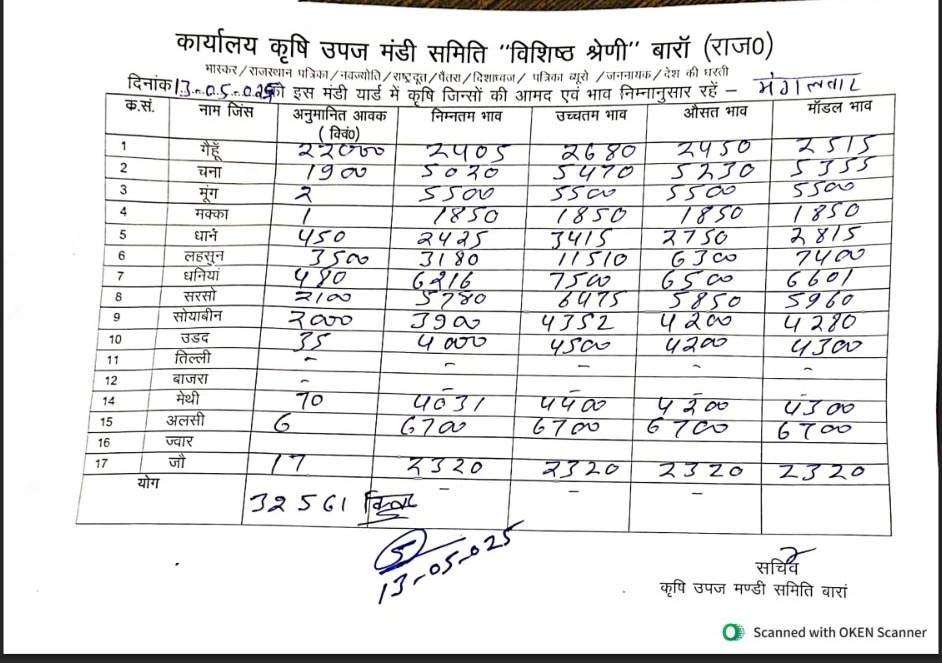 कार्यालय कृषि उपज मंडी समिति "विशिष्ठ श्रेणी" बारॉ (राज0)
भास्कर/राजस्थान पत्रिका/नवज्योति/राष्ट्रदूत/पैंतरा/दिशाध्वज/ पत्रिका ब्यूरो /जननायक/देश की धरती
दिनांक 13-05-025 को इस मंडी यार्ड में कृषि जिन्सों की आमद एवं भाव निम्नानुसार रहें – मंगलवार
क.सं. नाम जिंस अनुमानित आवक (क्विं0) निम्नतम भाव उच्चतम भाव औसत भाव मॉडल भाव
1 गैहूँ 22000 2405 2680 2450 2515
2 चना 1900 5020 5470 5230 5355
3 मूंग 2 5500 5500 5500 5500
4 मक्का 1 1850 1850 1850 1850
5 धान 450 2425 3415 2750 2815
6 लहसुन 3500 3180 11510 6300 7400
7 धनियां 480 6216 7500 6500 6601
8 सरसो 2100 5780 6475 5850 5960
9 सोयाबीन 2000 3900 4352 4200 4280
10 उडद 35 4000 4500 4200 4300
11 तिल्ली - - - - -
12 बाजरा -
14 मेथी 70 4031 4400 4200 4300
15 अलसी 6 6700 6700 6700 6700
16 ज्वार
17 जौ 17 2320 2320 2320 2320
योग 32561 - - -
13-05-025
सचिव
कृषि उपज मण्डी समिति बारां
Scanned with OKEN Scanner